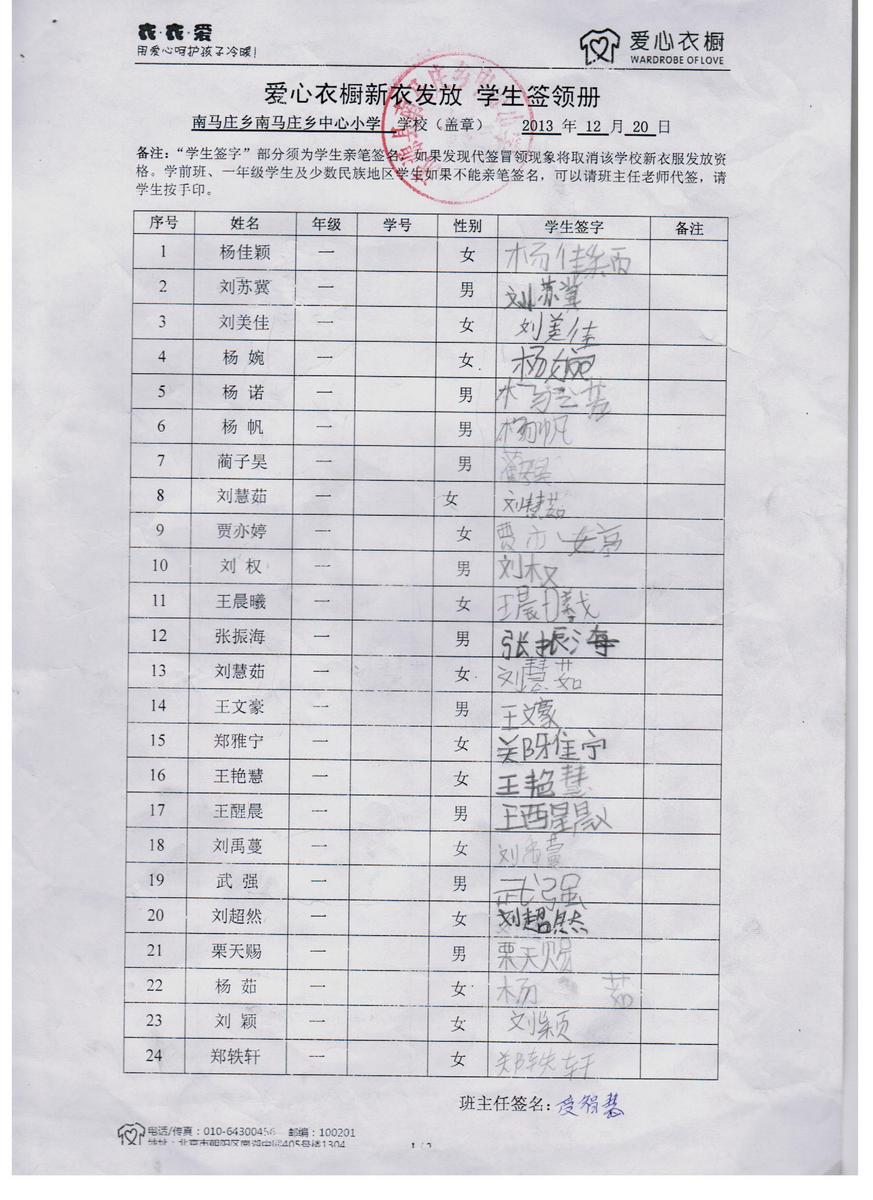 衣·衣·爱
用爱心呵护孩子冷暖!
爱心衣橱
WARDROBE OF LOVE
爱心衣橱新衣发放 学生签领册
南马庄乡南马庄乡中心小学 学校（盖章） 2013 年 12 月 20 日
备注：“学生签字”部分须为学生亲笔签名，如果发现代签冒领现象将取消该学校新衣服发放资
格。学前班、一年级学生及少数民族地区学生如果不能亲笔签名，可以请班主任老师代签，请
学生按手印。
序号 姓名 年级 学号 性别 学生签字 备注
1 杨佳颖 一 女 杨佳颖
2 刘苏冀 一 男 刘苏冀
3 刘美佳 一 女 刘美佳
4 杨 婉 一 女 杨婉
5 杨 诺 一 男 杨诺
6 杨 帆 一 男 杨帆
7 蔺子昊 一 男 蔺子昊
8 刘慧茹 一 女 刘慧茹
9 贾亦婷 一 女 贾亦婷
10 刘 权 一 男 刘权
11 王晨曦 一 女 王晨曦
12 张振海 一 男 张振海
13 刘慧茹 一 女 刘慧茹
14 王文豪 一 男 王文豪
15 郑雅宁 一 女 郑雅宁
16 王艳慧 一 女 王艳慧
17 王醒晨 一 男 王醒晨
18 刘禹蔓 一 女 刘禹蔓
19 武 强 一 男 武强
20 刘超然 一 女 刘超然
21 栗天赐 一 男 栗天赐
22 杨 茹 一 女 杨 茹
23 刘 颖 一 女 刘颖
24 郑轶轩 一 女 郑轶轩
班主任签名:
电话/传真：010-64300456 邮编：100201
地址：北京市朝阳区南湖中园405号楼1304